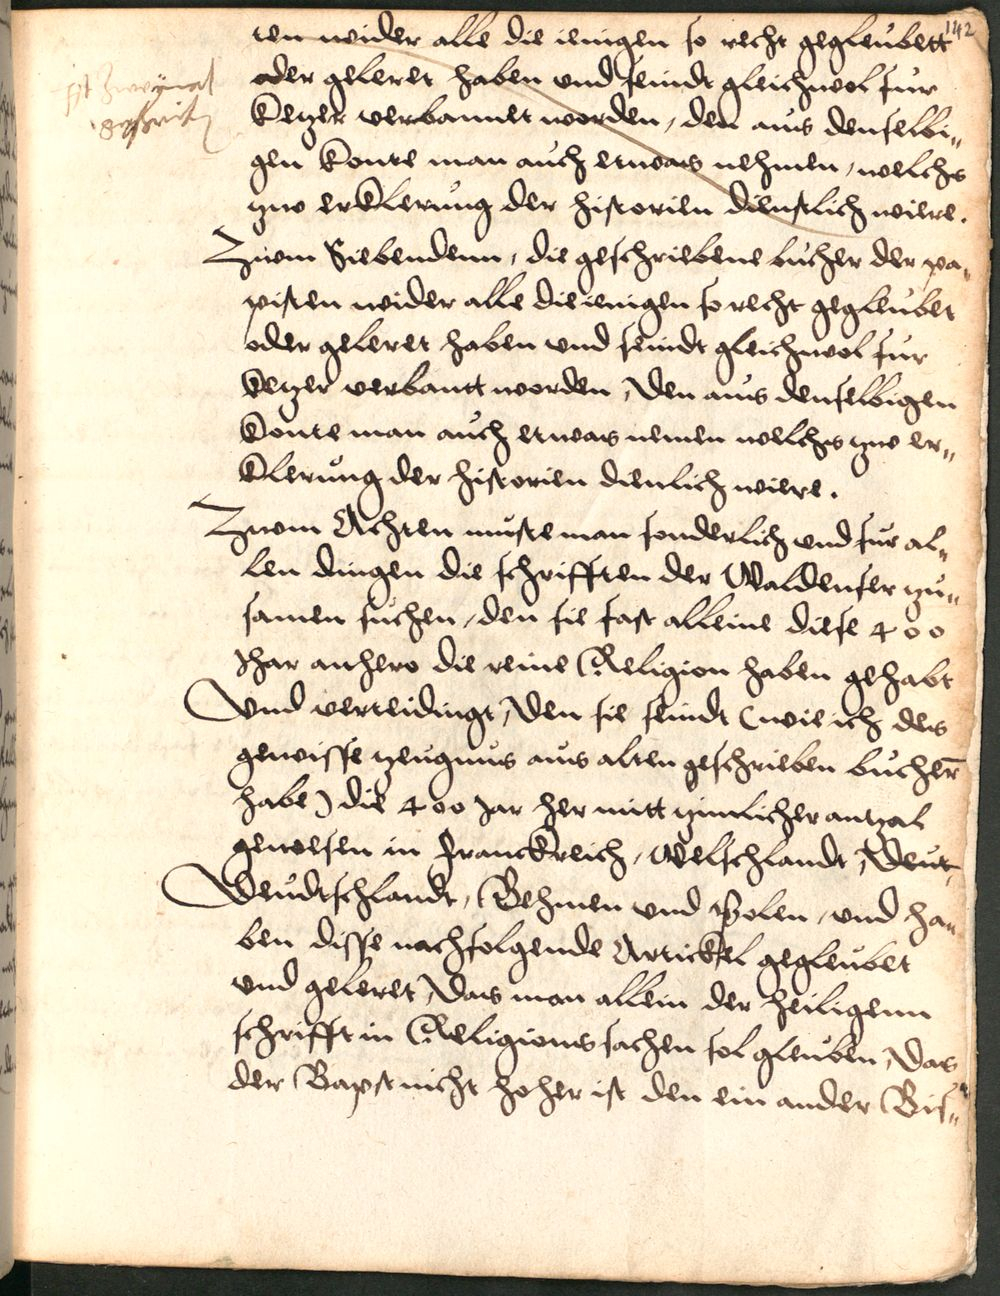 142
ten wider alle die ienigen so recht gegleubett
oder geleret haben vnd seindt gleichwol fur
Ist zweymal
geschrieben
Ketzer verbannet worden, den aus denselbi„
gen konte man auch etwas nehmen, welchs
zuo erklerung der historien dienstlich wiere.
Zuom Siebendenn, die geschriebene bucher der pa„
pisten wider alle die ienigen so recht gegleubet
oder geleret haben vnd seindt gleichwol fur
Ketzer verbantt worden, Den aus denselbigen
konte man auch etwas nemen welchs zuo er„
klerung der historien dienlich wiere.
Zuom Achten muste man sonderlich vnd fur al„
len dingen die schrifften der Waldenser zu„
samen suchen, den sie fast alleine diese 400
Jhar anhero die reine Religion haben gehabt
Vnd verteidingt, Den sie seindt (wie ich des
gewisse zeugnus aus alten geschrieben bucher̄
habe) die 400 Jar her mitt zimlicher antzal
gewesen in Franckreich, Welschlandt, Deut„
Deudtschlandt, Behmen vnd Polen, vnd ha„
ben disse nachfolgende Artickel gegleubet
vnd geleret, Das man allein der heiligenn
schrifft in Religions sachen sol gleuben, Das
der Bapst nicht hoher ist den ein ander Bis„